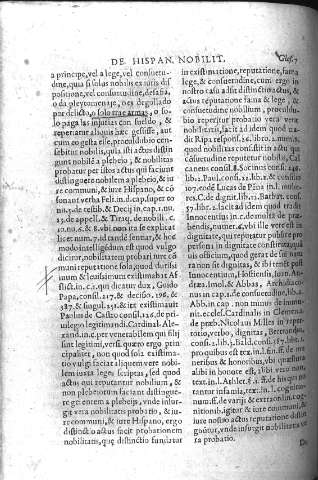 DE HISPAN. NOBILIT. Glos. 7
a principe, vel a lege, vel consuetu-
dine, qua si solus nobilis ex iuris dis
positione, vel consuetudine, desafia,
o da pleytomenaje, o es degollado
por delicto, o solo trae armas, o so-
lo paga las injurias con sueldo, &
reperiatur aliquis hæc gessisse, aut
cum eo gesta esse, proculdubio cen-
sebitur nobilis, quia isti actus distin
gunt nobilē a plebeio, & nobilitas
probatur per istos actus qui faciunt
distinguere nobilem a plebeio, & iu
re communi, & iure Hispano, & cō
sonant verba
pell. & Tiraq. de nobili. c.
10. nu. 5. & 8. vbi non ita se explicat
licet num. 7. id tandē sentiat, & hoc
modo intelligendum est quod vulgo
dicitur, nobilitatem probari iure cō
muni reputatione sola, quod durissi
mum & leuissimum existimabat Af-
flict. in. c. 1. qui dicatur dux, Guido
Papa, consil. 217. & decisio. 196. &
387. & singul. 251. & ita existimauit
Paulus de Castro consil. 126. de pri-
uilegio legitimandi. Cardinal. Ale-
xand. in. c. per venerabilem qui filij
sint legitimi, versi. quæro ergo prin
cipaliter, non quod sola existima-
tio vulgi faciat aliquem vere nobi-
lem iuxta leges scriptas, sed quod
actus qui reputantur nobilium, &
non plebeiorum faciant distingue-
re gerentem a plebeijs, vnde insur-
git vera nobilitatis probatio, & iu-
re communi, & iure Hispano, ergo
distincti actus facit probationem
nobilitatis, quę distinctio sumitur
in existimatione, reputatione, fama
lege, & consuetudine, cum ergo in
nostro casu adsit distinctio actus, &
actus reputatione famæ & lege, &
consuetudine nobilium, proculdu-
bio reperitur probatio vera veræ
nobilitatis, facit
di Ripa respons. 36. libro. 2. num. 2.
quod nobilitas consistit in actus qui
consuetudine reputetur nobilis, Cal
canens consil. 8. Socinus consil. 148.
lib. 1. Paul. consil. 23. lib. 1. & consilio
107. code Lucas de Pēna in. l. mulie-
res. C. de dignit. lib. 12. Barbat. cons.
57. lib. 2. facit ad idem quod tradit
Innocentius in c. de multa, de præ-
bendis, numer. 4. vbi ille versit in
dignitate, qui reputatur publice per
sonam in dignitate constitutā quāuis
officium, quod gerat de sui natu
ra non sit dignitas, & ibi tenet post
Innocentium, Hostiensis, Ioan. An-
dreæ, Imol. & Abbas, Archidiaco-
nus in cap. 1. de consuetudine lib. 6.
Abb. in cap. non minus de immuni-
nit. eccles. Cardinalis in Clement.
de præb. Nicolaus Milles in reper-
torio, verbo, dignitas, Bertrandus,
consil. 21. lib. 3. Bald. consil. 387. lib. 1.
pro quibus est tex. in. l. 1. ff. de mu-
neribus & honoribus, vbi quamuis
alibi in honore est, alibi vero non,
text. in. l. Athlet. § 1. ff. de his qui no
tantur infamia, tex. in. l. cognitio-
num. ff. de varijs & extraordin. cog-
nitionib. igitur & iure communi, &
iure nostro actus reputatione distin
guitur, vnde insurgit nobilitatis ve-
ra probatio.